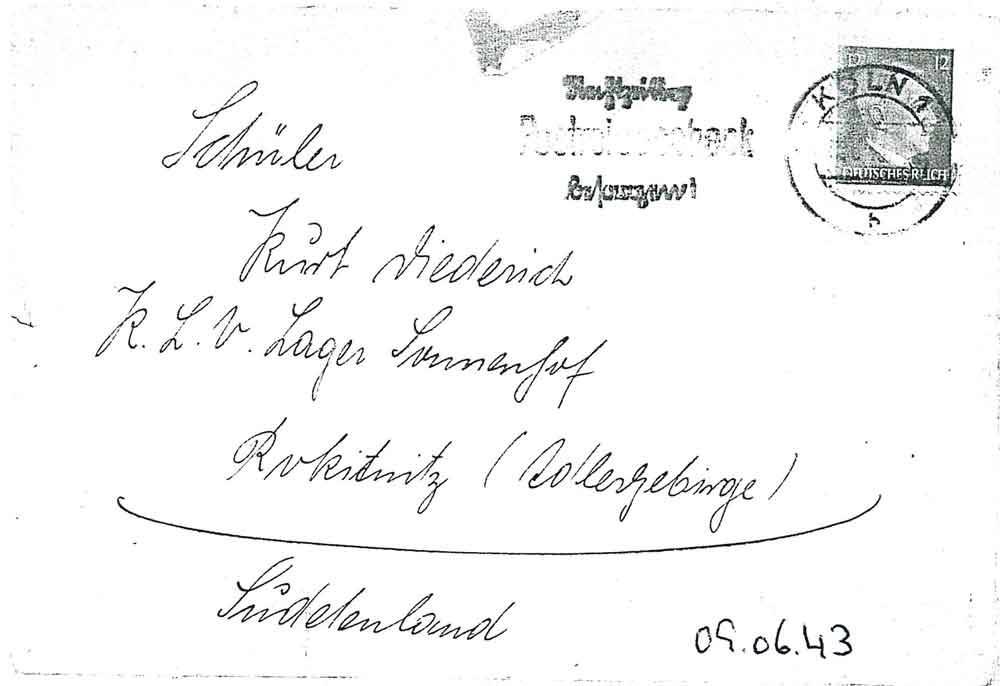 12 12
KÖLN 1
DEUTSCHES REICH
h
Rechtzeitig
Postreisescheck
besorgen!
Schüler
Kurt Diederich
K. L. V. Lager Sonnenhof
Rokitnitz (Adlergebirge)
Sudetenland
09.06.43